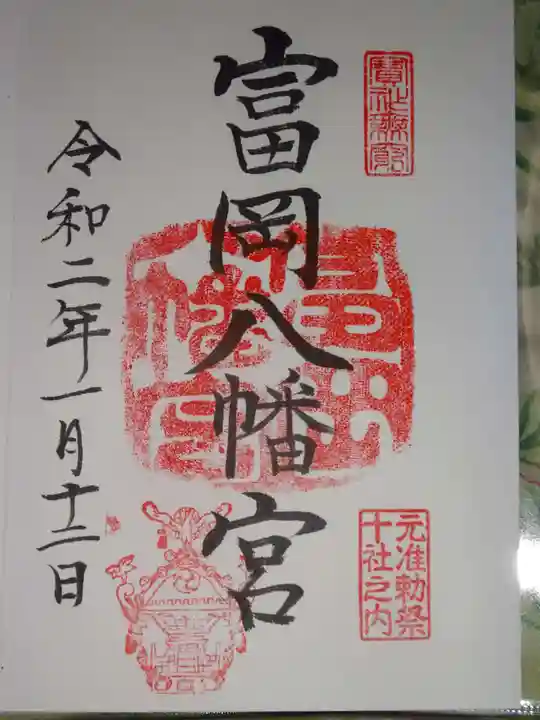 富岡八幡宮
元准勅祭
十社之内
令和二年一月十二日